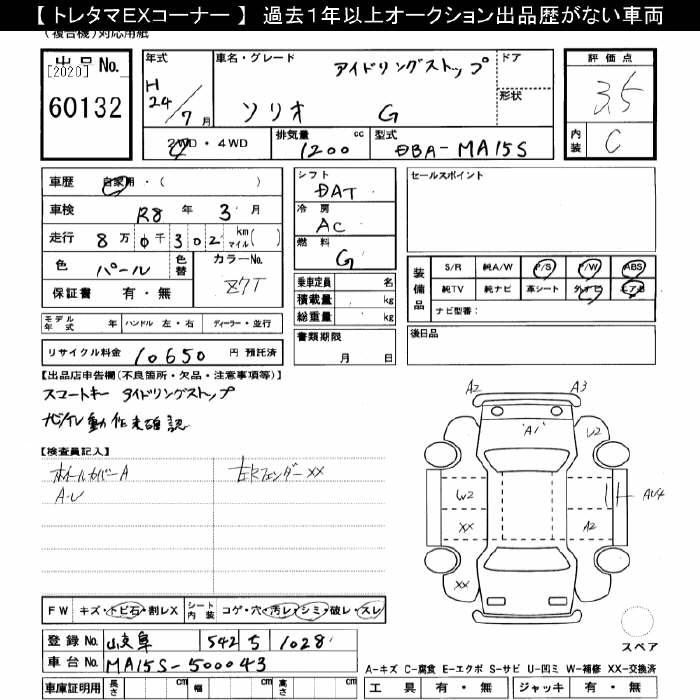 【 トレタマEXコーナー 】 過去１年以上オークション出品歴がない車両
(複合機)対応用紙
出品 No.
[2020]
60132
年式
H 24/7月
車名・グレード
アイドリングストップ
ソリオ G
ドア
形状
評価点
3.5
内装 C
2WD・4WD
排気量 1200 cc
型式 DBA-MA15S
車歴 自家用・( )
車検 R8 年 3 月
走行 8万0千302 km マイル( )
色 パール
色替
カラーNo. ZQT
保証書 有・無
シフト
DAT
冷房
AC
燃料
G
セールスポイント
乗車定員 名
積載量 kg
総重量 kg
装備品
S/R 純A/W P/S P/W ABS
純TV 純ナビ 革シート 外ナビ エアB
ナビ型番:
モデル年式 年 ハンドル 左・右 ディーラー・並行
書類期限
月 日
後日品
リサイクル料金 10650 円 預託済
【出品店申告欄(不良箇所・欠品・注意事項等)】
スマートキー アイドリングストップ
ナビTV動作未確認
【検査員記入】
ホイールカバーA
A・U
左Rフェンダー XX
A2 A3
A1 U2
W2 AU4
XX A2
XX
スペア
FW キズ・トビ石・割レX シート内装 コゲ・穴・汚レ・シミ・破レ・スレ
登録 No. 岐阜 542 ち 1028
車台 No. MA15S-500043
A-キズ C-腐食 E-エクボ S-サビ U-凹ミ W-補修 XX-交換済
車庫証明用 長さ cm 幅 cm 高さ cm
工具 有・無 ジャッキ 有・無